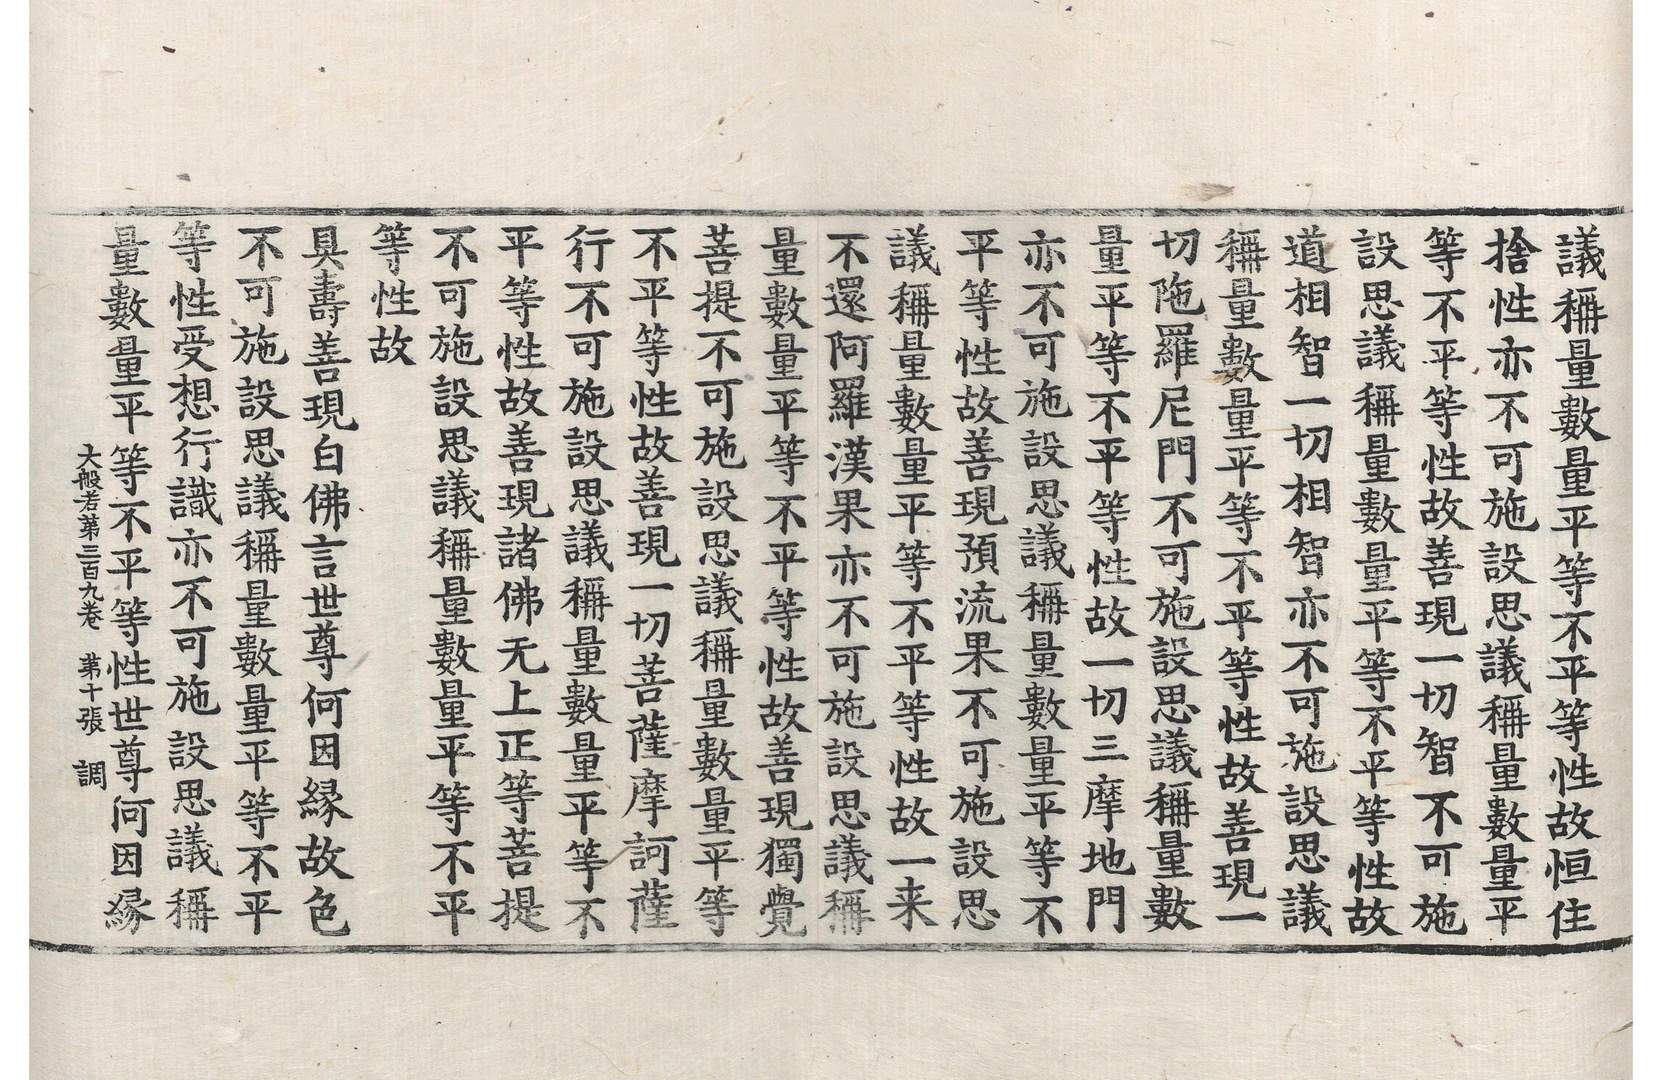 議稱量數量平等不平等性故恒住
捨性亦不可施設思議稱量數量平
等不平等性故善現一切智不可施
設思議稱量數量平等不平等性故
道相智一切相智亦不可施設思議
稱量數量平等不平等性故善現一
切陁羅尼門不可施設思議稱量數
量平等不平等性故一切三摩地門
亦不可施設思議稱量數量平等不
平等性故善現預流果不可施設思
議稱量數量平等不平等性故一来
不還阿羅漢果亦不可施設思議稱
量數量平等不平等性故善現獨覺
菩提不可施設思議稱量數量平等
不平等性故善現一切菩薩摩訶薩
行不可施設思議稱量數量平等不
平等性故善現諸佛无上正等菩提
不可施設思議稱量數量平等不平
等性故
具壽善現白佛言世尊何因緣故色
不可施設思議稱量數量平等不平
等性受想行識亦不可施設思議稱
量數量平等不平等性世尊何因緣
大般若第三百九卷 第十張 調